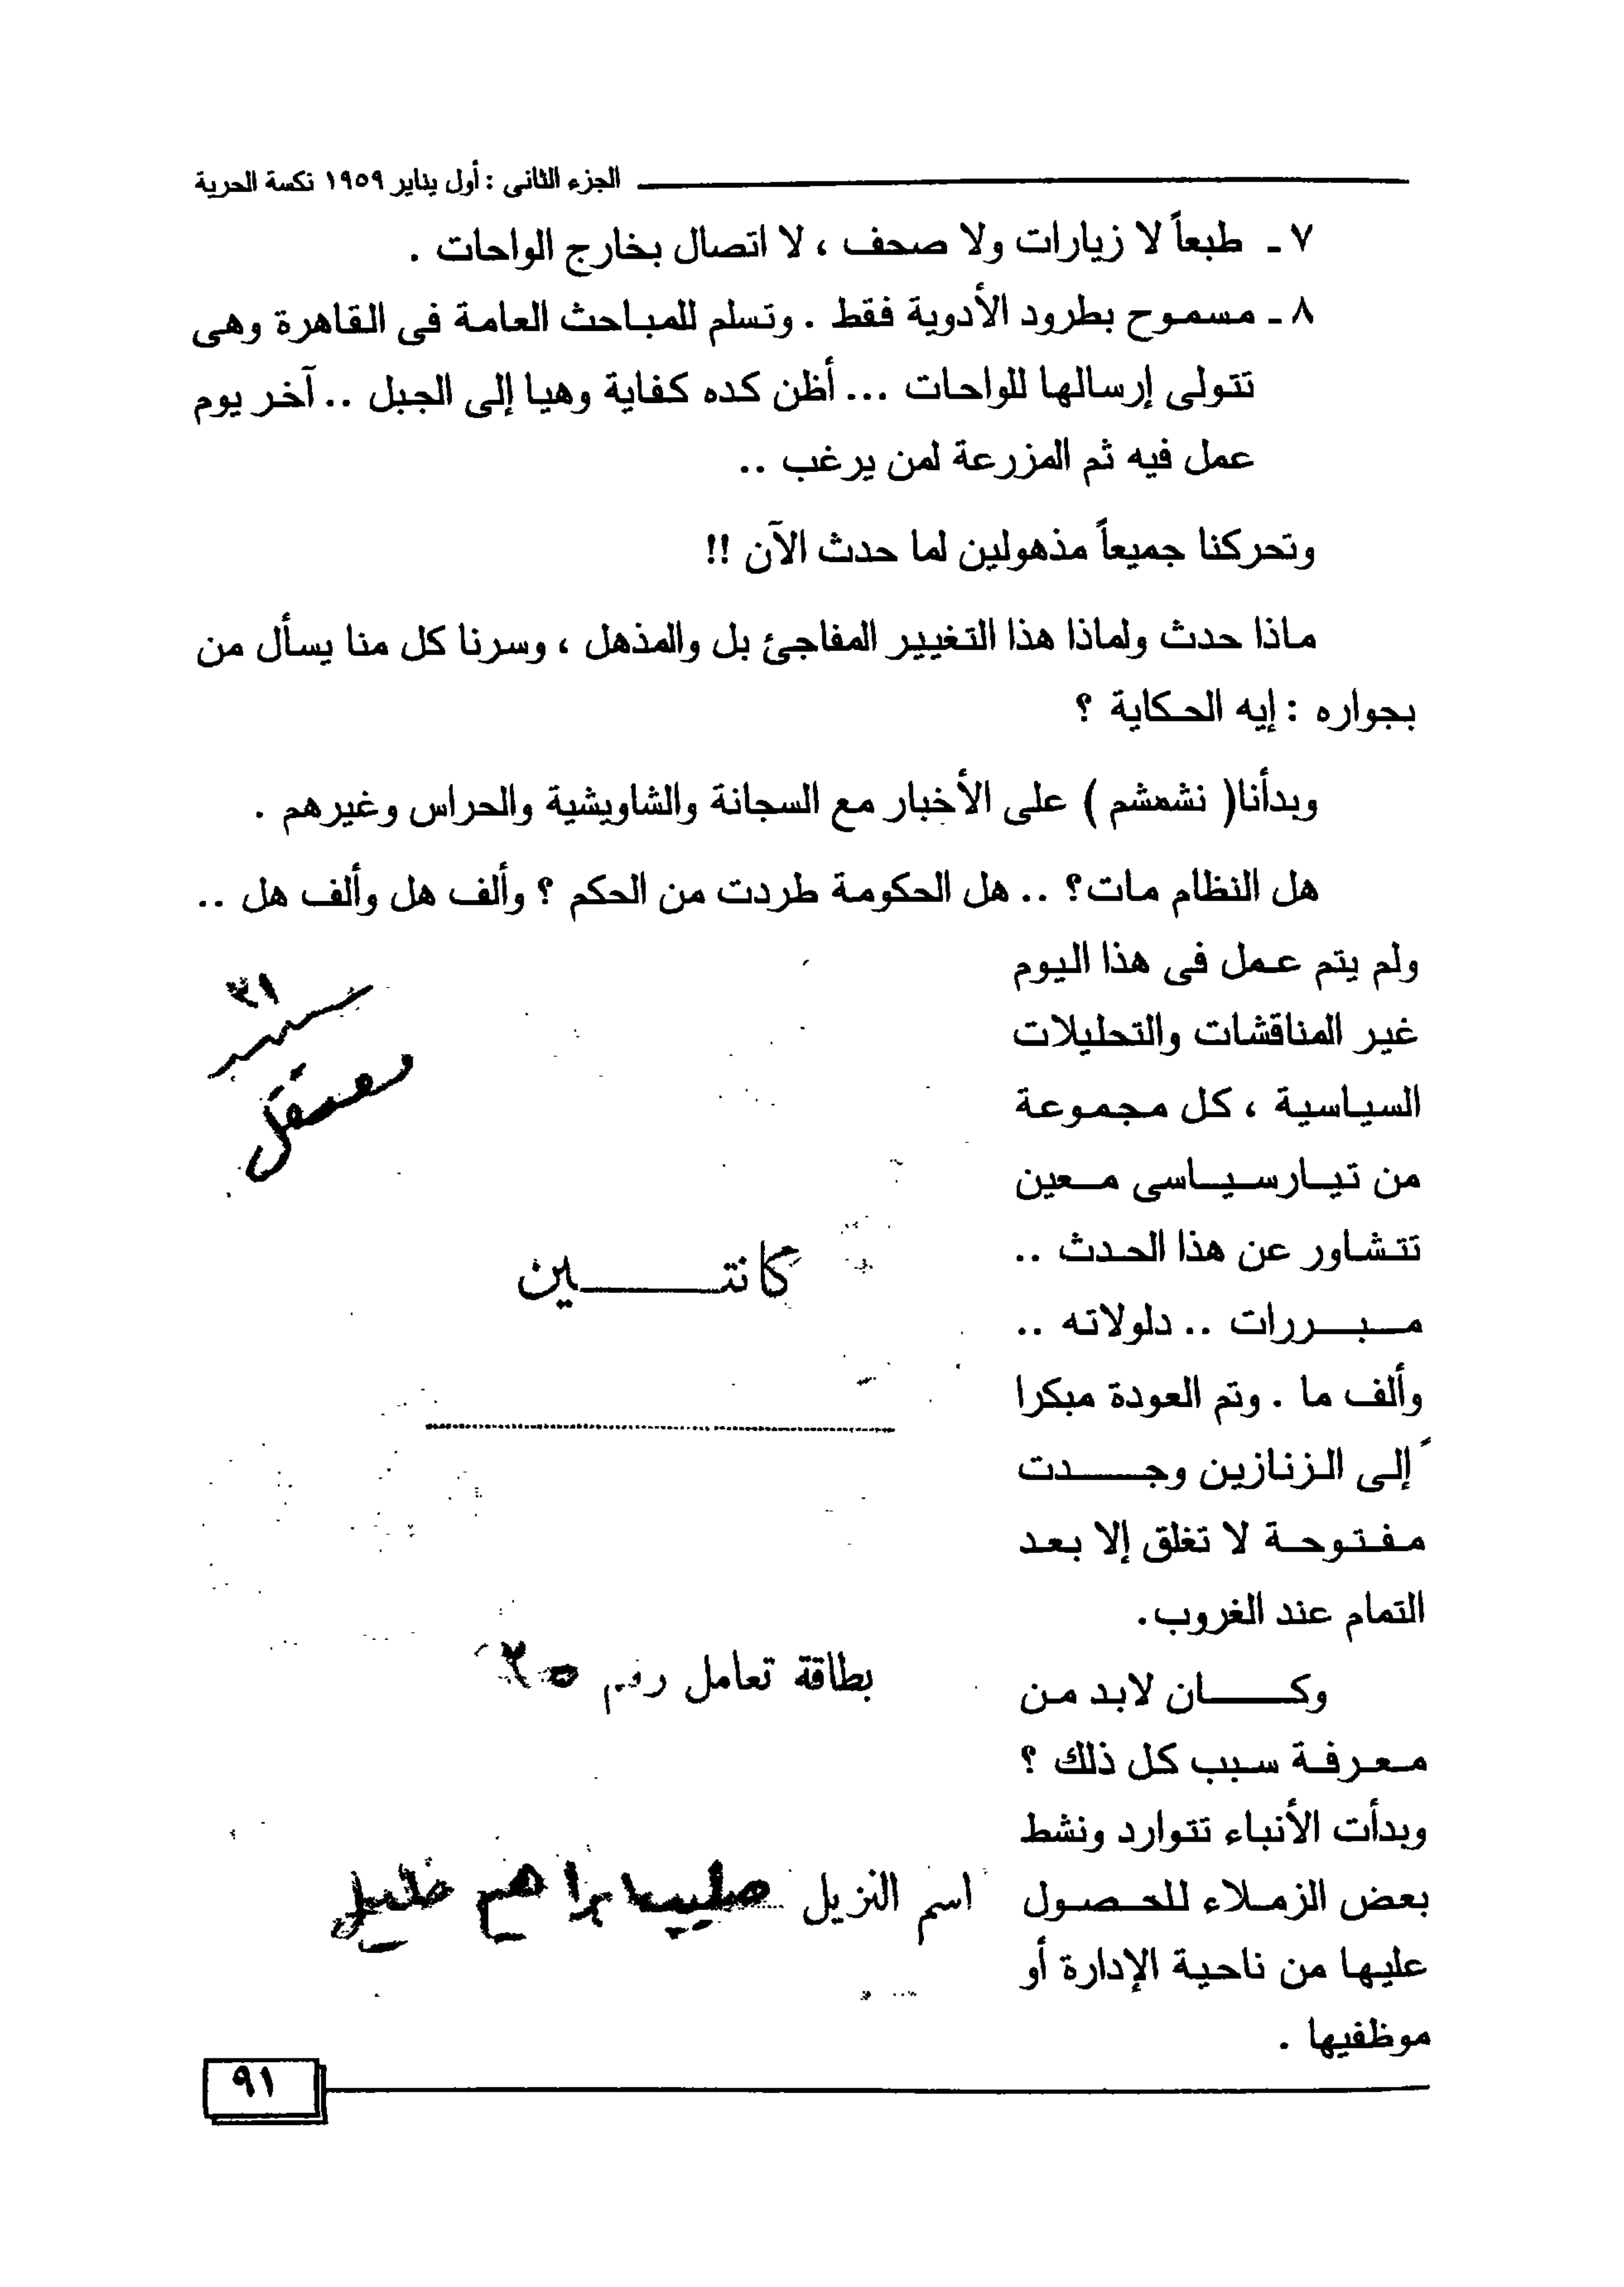 الجزء الثانى : أول يناير ١٩٥٩ نكسة الحرية
٧ ـ طبعاً لا زيارات ولا صحف ، لا اتصال بخارج الواحات .
٨ ـ مسموح بطرود الأدوية فقط . وتسلم للمباحث العامة فى القاهرة وهى
تتولى إرسالها للواحات ... أظن كده كفاية وهيا إلى الجبل .. آخر يوم
عمل فيه ثم المزرعة لمن يرغب ..
وتحركنا جميعاً مذهولين لما حدث الآن !!
ماذا حدث ولماذا هذا التغيير المفاجئ بل والمذهل ، وسرنا كل منا يسأل من
بجواره : إيه الحكاية ؟
وبدأنا( نشمشم ) على الأخبار مع السجانة والشاويشية والحراس وغيرهم .
هل النظام مات؟ .. هل الحكومة طردت من الحكم ؟ وألف هل وألف هل ..
ولم يتم عمل فى هذا اليوم
غير المناقشات والتحليلات
السياسية ، كل مجموعة
من تيارسياسى معين
تتشاور عن هذا الحدث ..
مبررات .. دلولاته ..
وألف ما . وتم العودة مبكرا
إلى الزنازين وجدت
مفتوحة لا تغلق إلا بعد
التمام عند الغروب.
وكان لابد من
معرفة سبب كل ذلك ؟
وبدأت الأنباء تتوارد ونشط
بعض الزملاء للحصول
عليها من ناحية الإدارة أو
موظفيها .
٣١
معتقل
كانتين
بطاقة تعامل رقم ٢٥
اسم النزيل صليب ابراهيم خليل
٩١